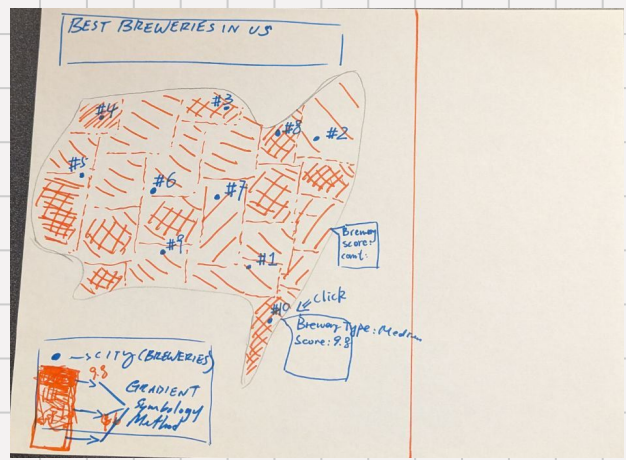 BEST BREWERIES IN US
#4
#3
#8
#2
#5
#6
#7
#9
#1
Brewery
Score:
#10
Click
Brewery Type: Medium
Score: 9.8
CITY (BREWERIES)
9.8
GRADIENT
Symbology
Method